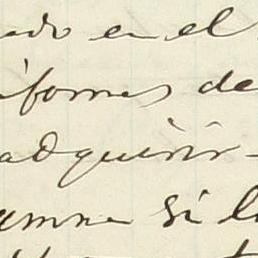 ado en el
iformes de
adquirir
amna si l